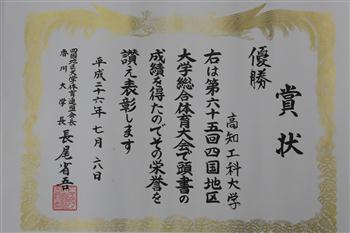 賞状
優勝
高知工科大学
右は第六十五回四国地区
大学総合体育大会で頭書の
成績を得たのでその栄誉を
讃え表彰します
平成二十六年七月六日
四国地区大学体育連盟会長
香川大学長 長尾省吾